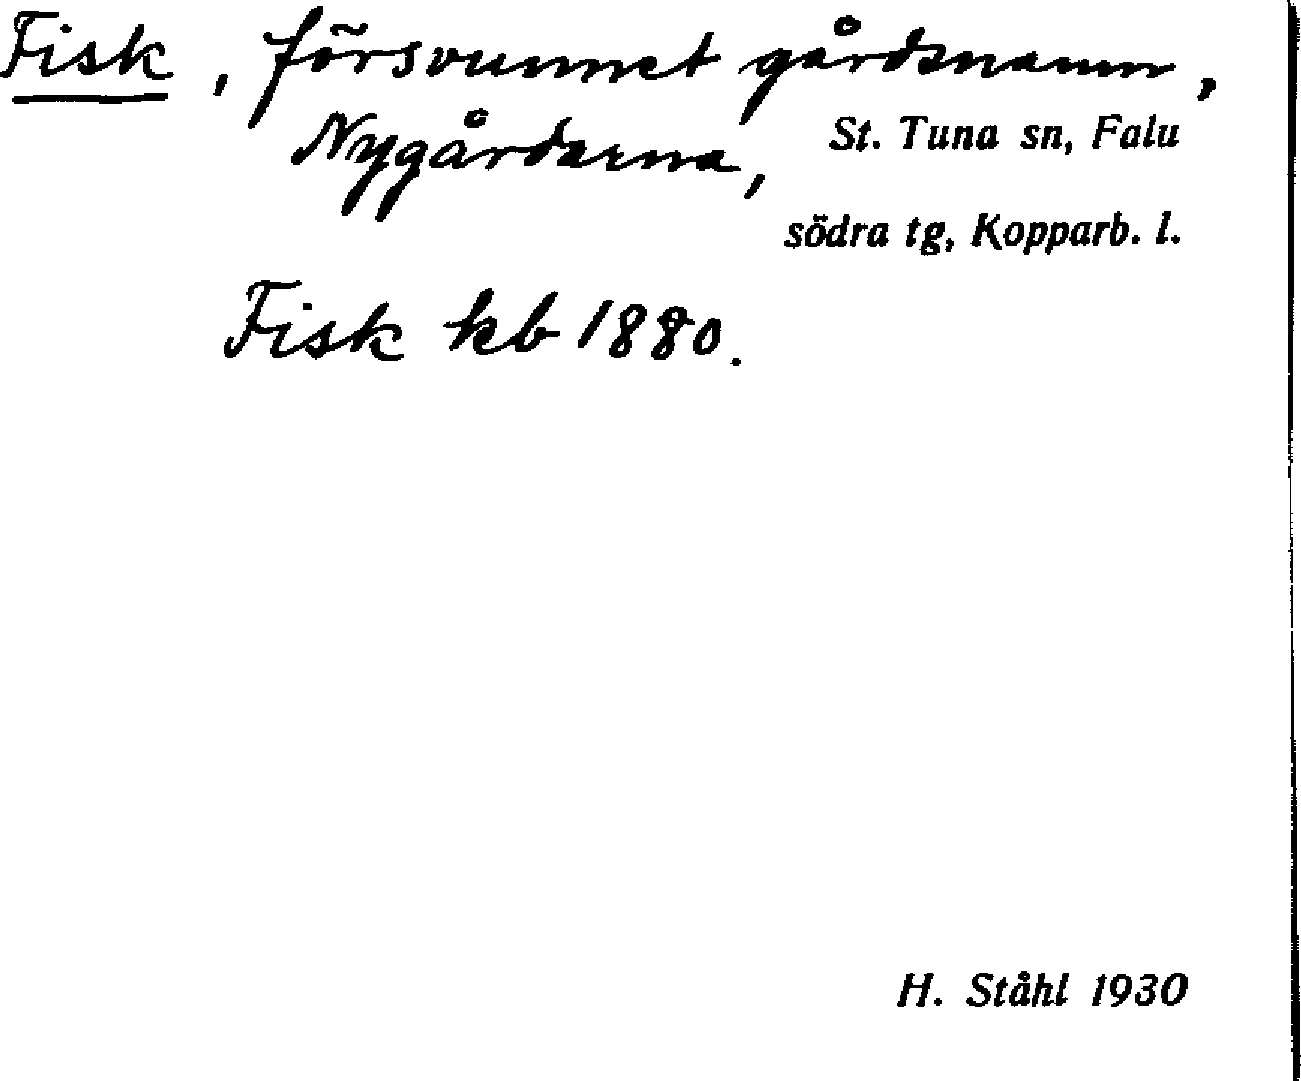 Fisk, försvunnet gårdsnamn,
Nygårdarna, St. Tuna sn, Falu
södra tg, Kopparb. l.
Fisk kb 1880.
H. Ståhl 1930